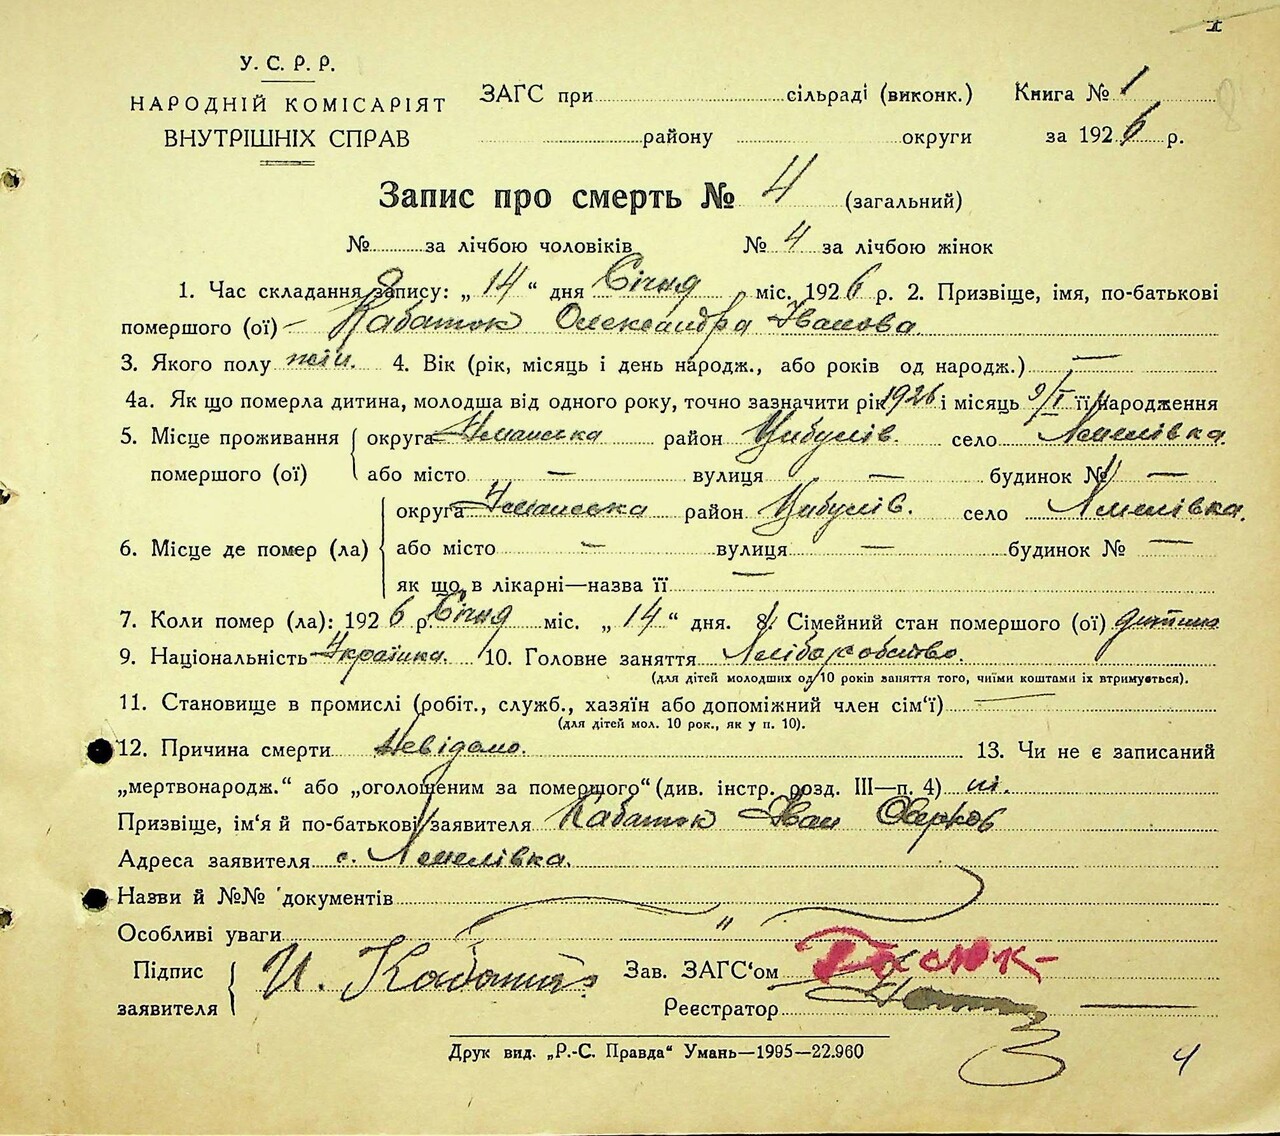 У. С. Р. Р.
НАРОДНІЙ КОМІСАРІЯТ
ВНУТРІШНІХ СПРАВ
ЗАГС при сільраді (виконк.) Книга № 1
району округи за 1926 р.
Запис про смерть № 4 (загальний)
№ за лічбою чоловіків № 4 за лічбою жінок
1. Час складання запису: „ 14 “ дня Січня міс. 1926 р. 2. Призвіще, імя, по-батькові
помершого (ої) – Кабаток Олександра Іванова
3. Якого полу жін. 4. Вік (рік, місяць і день народж., або років од народж.) —
4а. Як що померла дитина, молодша від одного року, точно зазначити рік 1926 і місяць 9/I її народження
5. Місце проживання помершого (ої) округа Уманська район Цибулів. село
або місто — вулиця — будинок № —
6. Місце де помер (ла) округа Уманська район Цибулів. село
або місто — вулиця — будинок № —
як що в лікарні—назва її —
7. Коли помер (ла): 1926 р. Січня міс. „ 14 “ дня. 8. Сімейний стан помершого (ої) дитина
9. Національність Українка. 10. Головне заняття Хліборобство.
(для дітей молодших од 10 років заняття того, чиїми коштами їх втримується).
11. Становище в промислі (робіт., служб., хазяїн або допоміжний член сім‘ї) —
(для дітей мол. 10 рок., як у п. 10).
12. Причина смерти Невідомо. 13. Чи не є записаний
„мертвонародж.“ або „оголошеним за помершого“ (див. інстр. розд. III—п. 4) ні.
Призвіще, ім‘я й по-батькові заявителя Кабаток Іван
Адреса заявителя с.
Назви й №№ документів
Особливі уваги "
Підпис заявителя И. Зав. ЗАГС‘ом
Реєстратор
Друк вид. „Р.-С. Правда“ Умань—1995—22.960
4